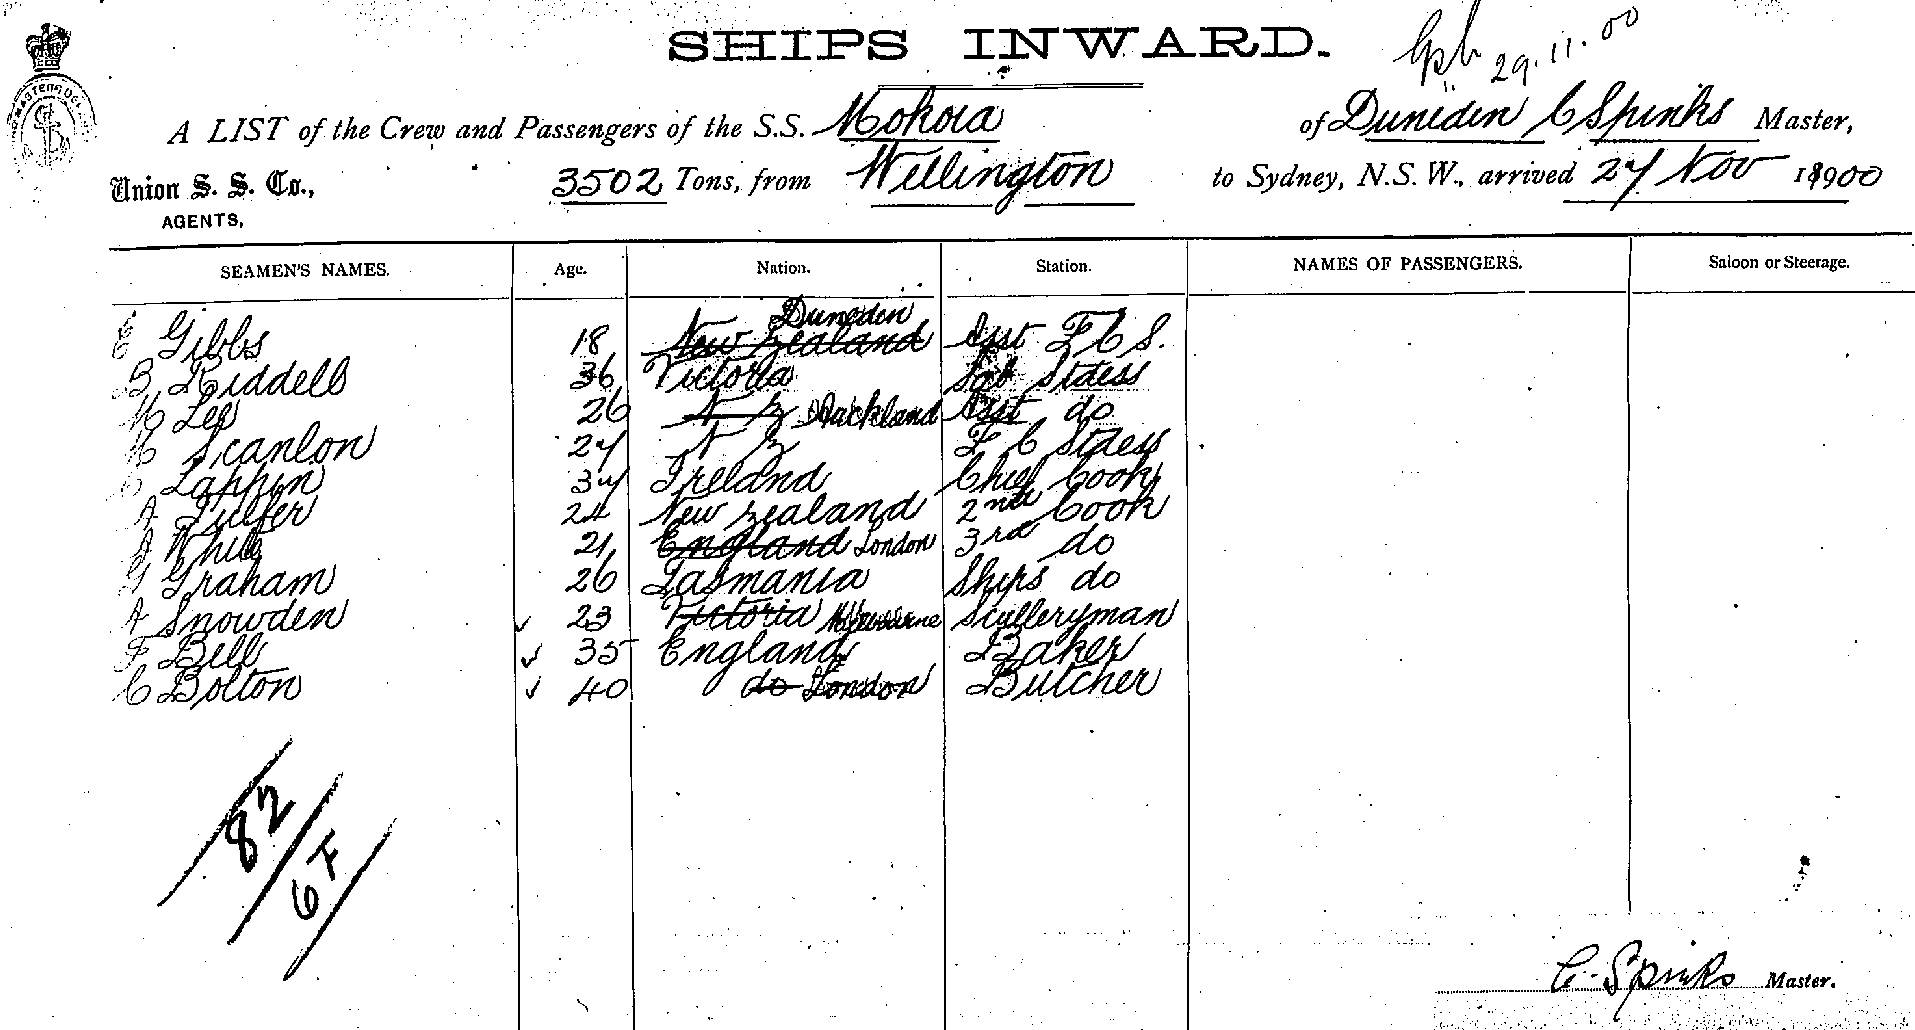 SHIPS INWARD.
29.11.00
A LIST of the Crew and Passengers of the S.S. Mokoia of Dunedin C Spinks Master,
Union S. S. Co., 3502 Tons, from Wellington to Sydney, N.S.W., arrived 27 Nov 1900
AGENTS,
SEAMEN'S NAMES. Age. Nation. Station. NAMES OF PASSENGERS. Saloon or Steerage.
Dunedin
E Gibbs 18 New Zealand Asst F C S.
B Riddell 36 Victoria Sal Stdess
M Lee 26 N Z Auckland Asst do
M Scanlon 27 N Z F C Stdess
C Lappin 34 Ireland Chief Cook
A 24 New Zealand 2nd Cook
A White 21 England London 3rd do
G Graham 26 Tasmania Ships do
A Snowden 23 Victoria Melbourne Sculleryman
F Bell 35 England Baker
C Bolton 40 do London Butcher
82
6 F
C. Spinks Master.